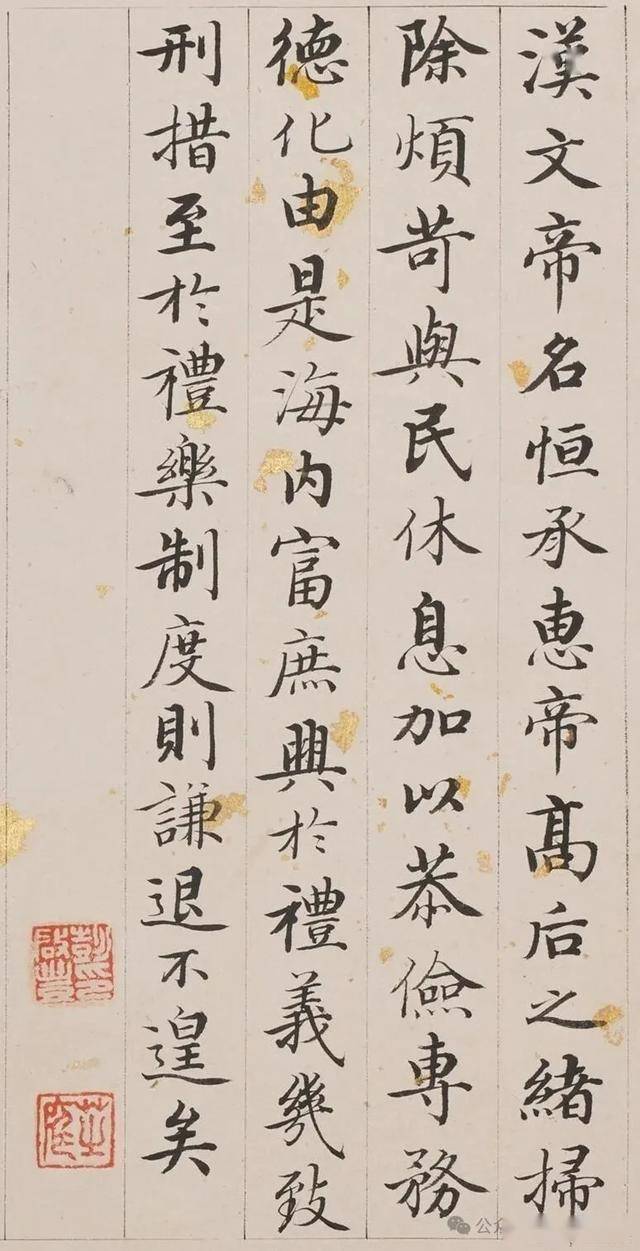 漢文帝名恒承恵帝髙后之緒掃
除煩苛與民休息加以恭儉專務
德化由是海内富庶興於禮義幾致
刑措至於禮樂制度則謙退不遑矣
公众